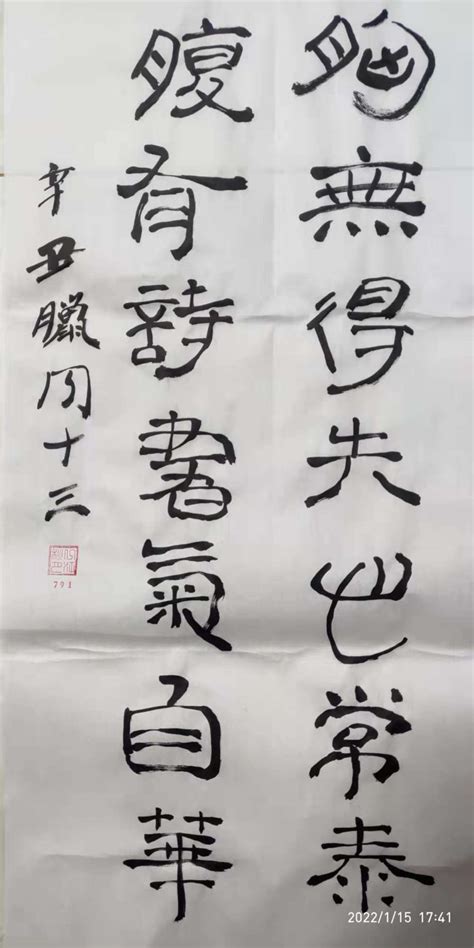 胸無得失心常泰
腹有詩書氣自華
辛丑臘月十三
791
2022/1/15 17:41